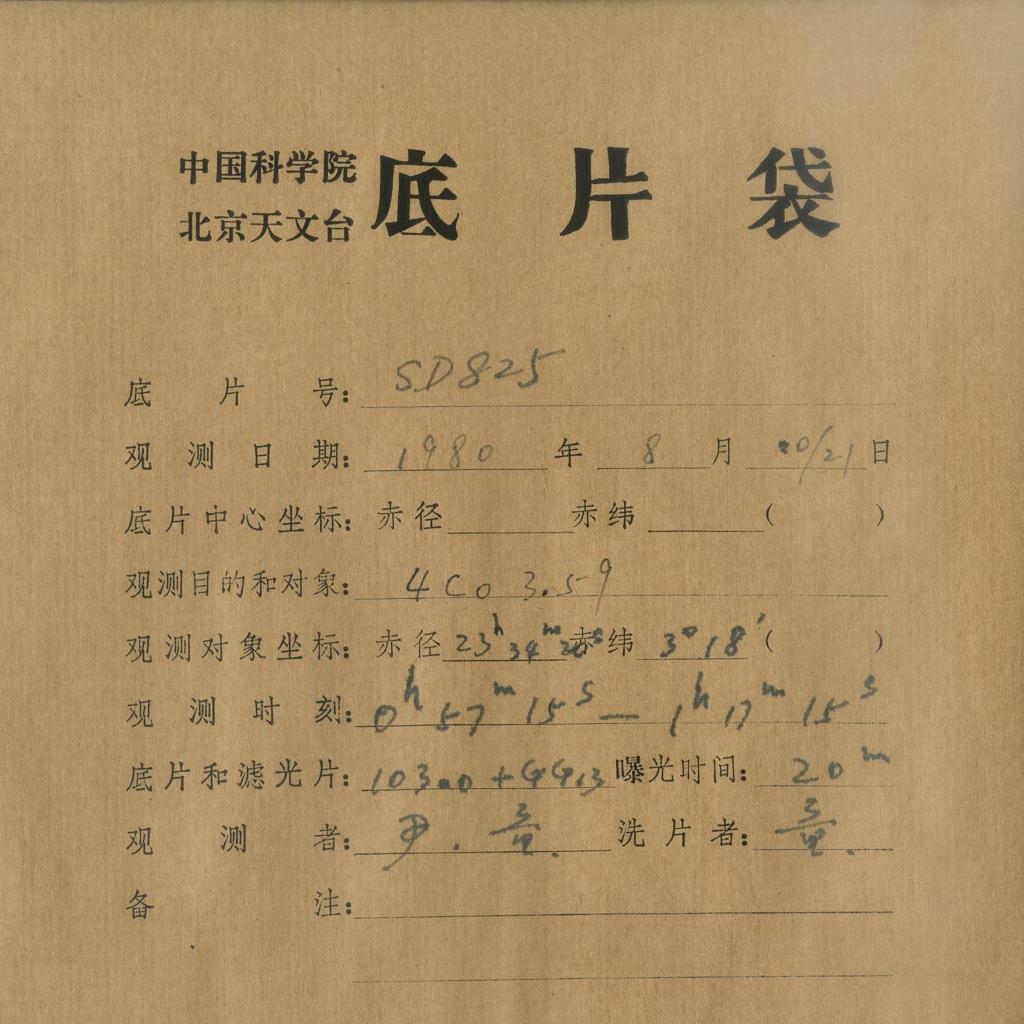 中国科学院
北京天文台
底片袋
底片号: SD825
观测日期: 1980年 8月 20/21日
底片中心坐标: 赤径 赤纬 ( )
观测目的和对象: 4C03.59
观测对象坐标: 赤径 23h 34m 赤纬 3°18′ ( )
观测时刻: 0h 57m 15s — 1h 17m 15s
底片和滤光片: 103a0 + GG13 曝光时间: 20m
观测者: 尹. 洗片者:
备注: